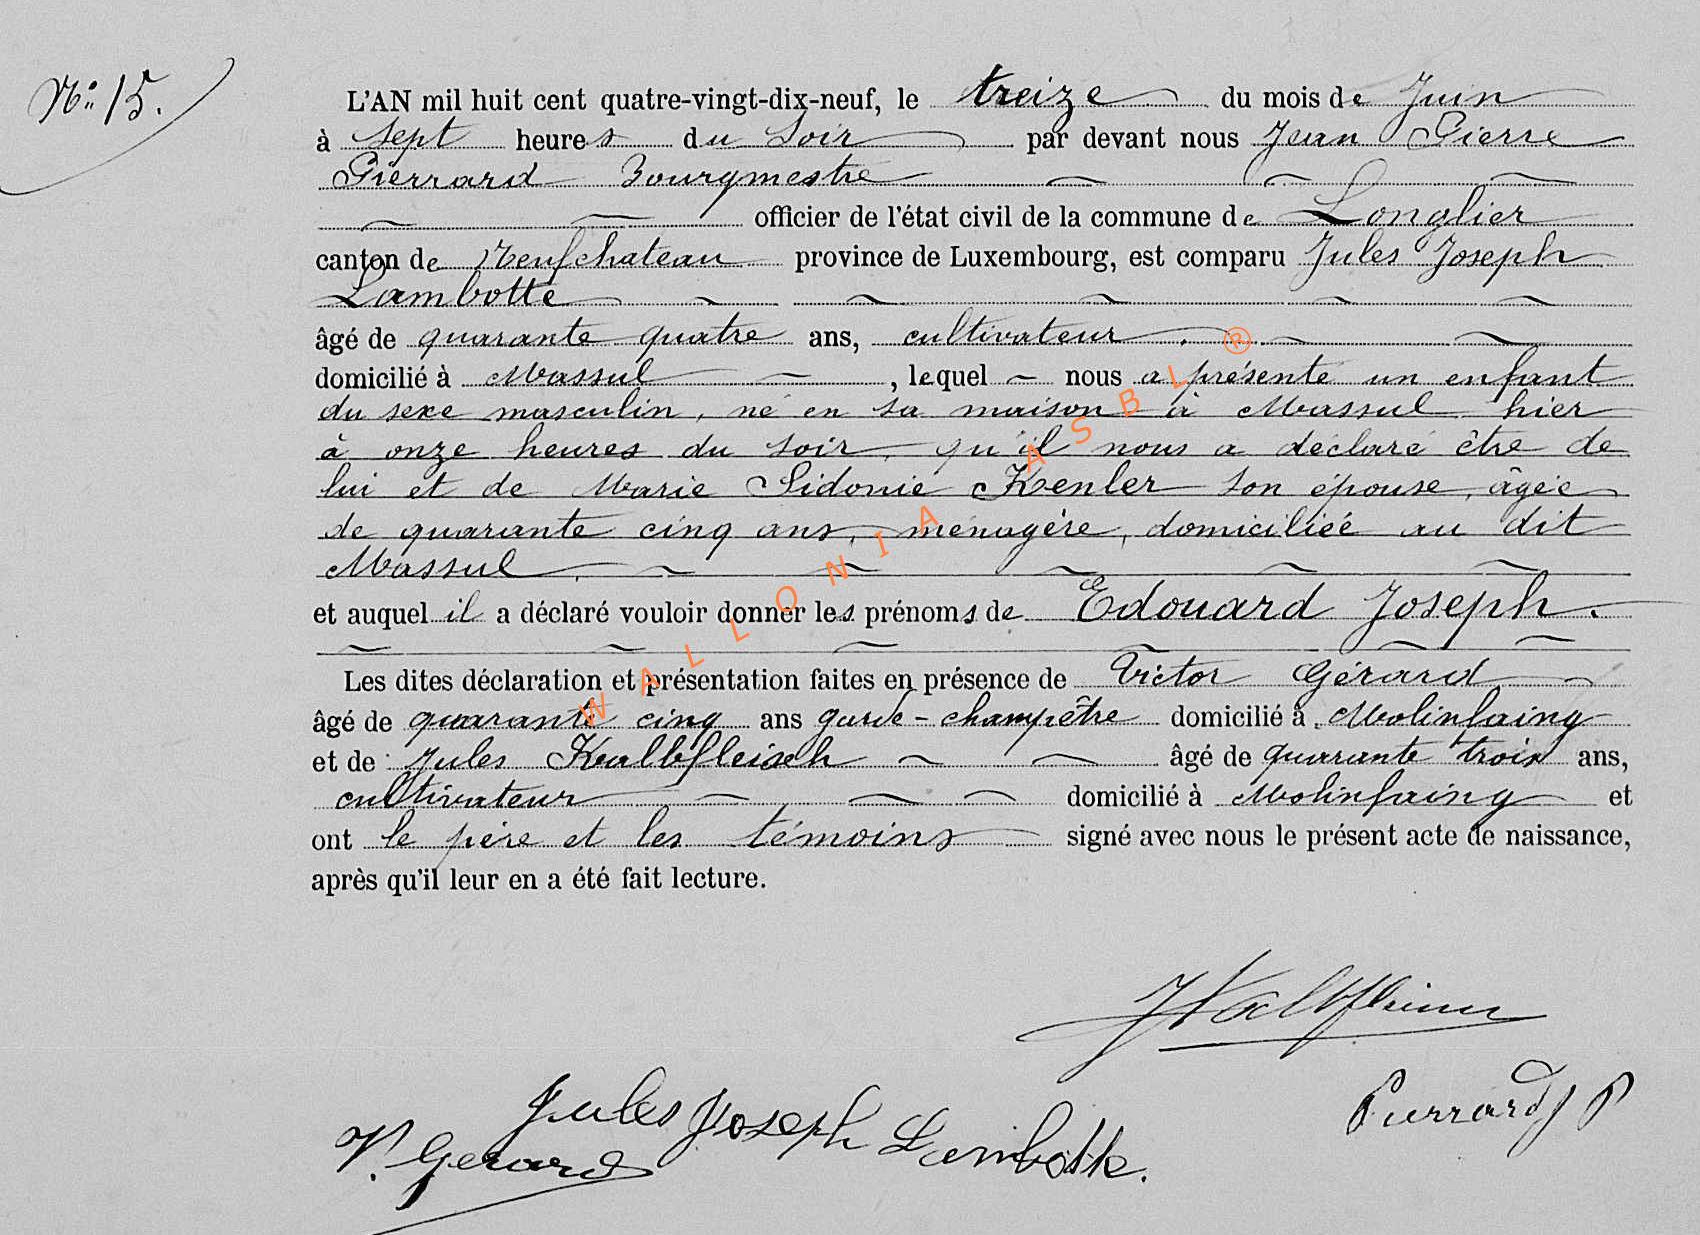 N° 15.
L'AN mil huit cent quatre-vingt-dix-neuf, le treize du mois de Juin
à sept heures du soir par devant nous Jean Pierre
Pierrard Bourgmestre
officier de l'état civil de la commune de Longlier
canton de Neufchateau province de Luxembourg, est comparu Jules Joseph
Lambotte
âgé de quarante quatre ans, cultivateur.
domicilié à Massul, lequel nous a présenté un enfant
du sexe masculin, né en sa maison à Massul hier
à onze heures du soir, qu'il nous a déclaré être de
lui et de Marie Sidonie Kenler son épouse, âgée
de quarante cinq ans, ménagère, domiciliée au dit
Massul.
et auquel il a déclaré vouloir donner les prénoms de Edouard Joseph.
Les dites déclaration et présentation faites en présence de Victor Gérard
âgé de quarante cinq ans garde-champêtre domicilié à Molinfaing
et de Jules Kalbfleisch âgé de quarante trois ans,
cultivateur domicilié à Molinfaing et
ont le père et les témoins signé avec nous le présent acte de naissance,
après qu'il leur en a été fait lecture.
Pierrard J P
Jules Joseph Lambotte.
V. Gerard
WALLONIA ASBL ®